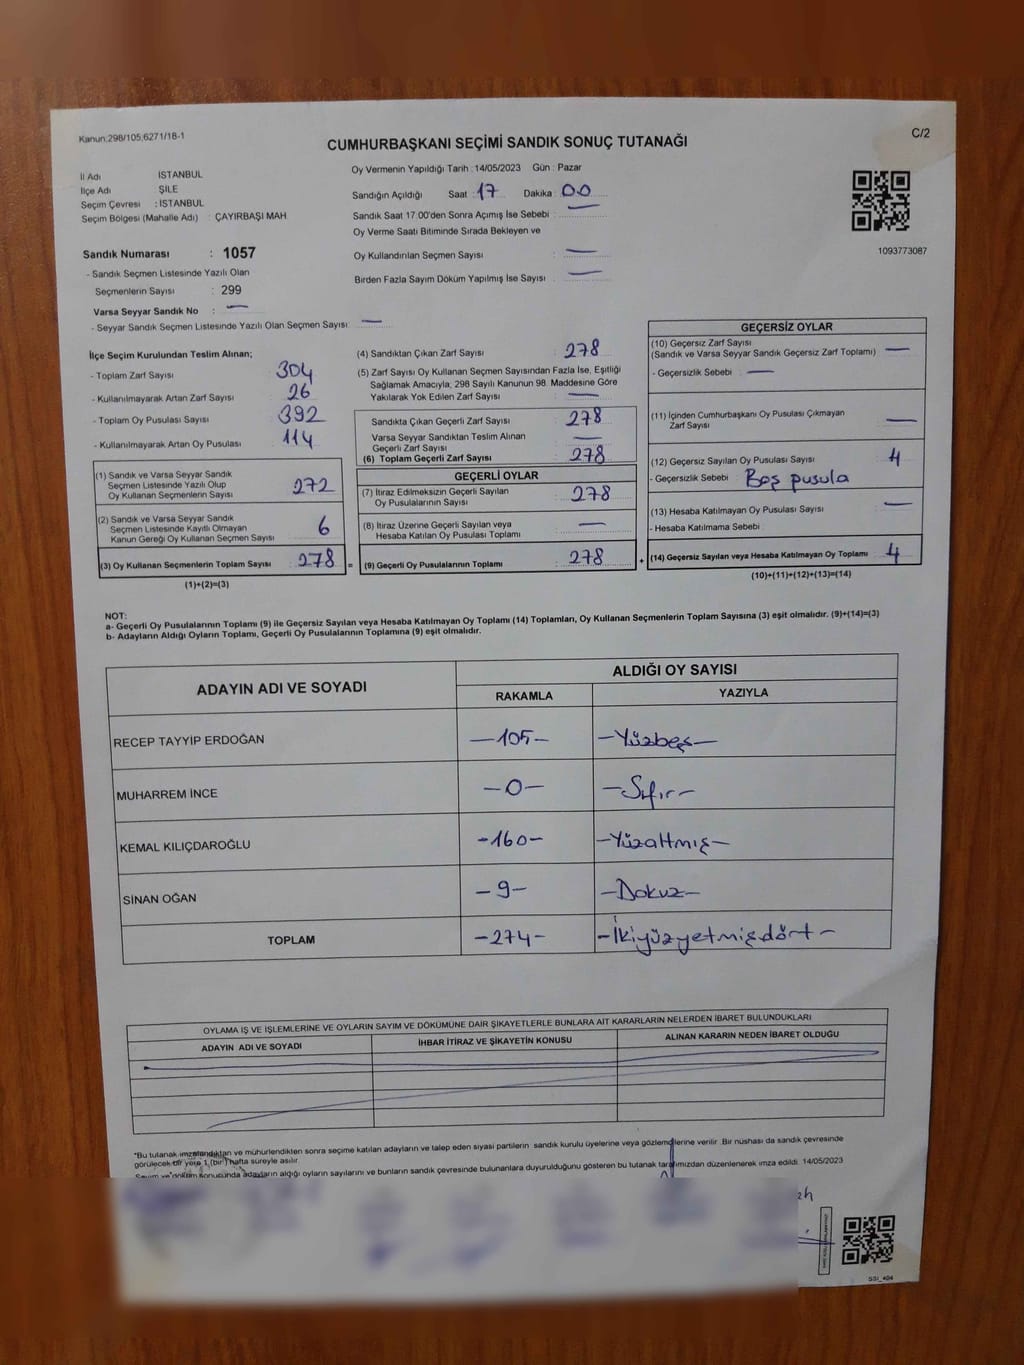 Kanun:298/105,6271/18-1
C/2
CUMHURBAŞKANI SEÇİMİ SANDIK SONUÇ TUTANAĞI
İl Adı İSTANBUL
İlçe Adı ŞİLE
Seçim Çevresi : İSTANBUL
Seçim Bölgesi (Mahalle Adı) : ÇAYIRBAŞI MAH
Sandık Numarası : 1057
- Sandık Seçmen Listesinde Yazılı Olan
Seçmenlerin Sayısı : 299
Varsa Seyyar Sandık No : —
- Seyyar Sandık Seçmen Listesinde Yazılı Olan Seçmen Sayısı: —
Oy Vermenin Yapıldığı Tarih : 14/05/2023 Gün : Pazar
Sandığın Açıldığı Saat : 17 Dakika : 00
Sandık Saat 17.00'den Sonra Açımış İse Sebebi : —
Oy Verme Saati Bitiminde Sırada Bekleyen ve
Oy Kullandırılan Seçmen Sayısı : —
Birden Fazla Sayım Döküm Yapılmış İse Sayısı : —
1093773087
İlçe Seçim Kurulundan Teslim Alınan;
- Toplam Zarf Sayısı 304
- Kullanılmayarak Artan Zarf Sayısı 26
- Toplam Oy Pusulası Sayısı 392
- Kullanılmayarak Artan Oy Pusulası 114
(1) Sandık ve Varsa Seyyar Sandık
Seçmen Listesinde Yazılı Olup
Oy Kullanan Seçmenlerin Sayısı 272
(2) Sandık ve Varsa Seyyar Sandık
Seçmen Listesinde Kayıtlı Olmayan
Kanun Gereği Oy Kullanan Seçmen Sayısı 6
(3) Oy Kullanan Seçmenlerin Toplam Sayısı 278 =
(1)+(2)=(3)
(4) Sandıktan Çıkan Zarf Sayısı : 278
(5) Zarf Sayısı Oy Kullanan Seçmen Sayısından Fazla İse, Eşitliği
Sağlamak Amacıyla, 298 Sayılı Kanunun 98. Maddesine Göre
Yakılarak Yok Edilen Zarf Sayısı : —
Sandıkta Çıkan Geçerli Zarf Sayısı : 278
Varsa Seyyar Sandıktan Teslim Alınan
Geçerli Zarf Sayısı : —
(6) Toplam Geçerli Zarf Sayısı : 278
GEÇERLİ OYLAR
(7) İtiraz Edilmeksizin Geçerli Sayılan
Oy Pusulalarının Sayısı : 278
(8) İtiraz Üzerine Geçerli Sayılan veya
Hesaba Katılan Oy Pusulası Toplamı : —
(9) Geçerli Oy Pusulalarının Toplamı : 278 +
GEÇERSİZ OYLAR
(10) Geçersiz Zarf Sayısı
(Sandık ve Varsa Seyyar Sandık Geçersiz Zarf Toplamı) —
- Geçersizlik Sebebi : —
(11) İçinden Cumhurbaşkanı Oy Pusulası Çıkmayan
Zarf Sayısı —
(12) Geçersiz Sayılan Oy Pusulası Sayısı 4
- Geçersizlik Sebebi : Boş pusula
(13) Hesaba Katılmayan Oy Pusulası Sayısı —
- Hesaba Katılmama Sebebi :
(14) Geçersiz Sayılan veya Hesaba Katılmayan Oy Toplamı 4
(10)+(11)+(12)+(13)=(14)
NOT:
a- Geçerli Oy Pusulalarının Toplamı (9) ile Geçersiz Sayılan veya Hesaba Katılmayan Oy Toplamı (14) Toplamları, Oy Kullanan Seçmenlerin Toplam Sayısına (3) eşit olmalıdır. (9)+(14)=(3)
b- Adayların Aldığı Oyların Toplamı, Geçerli Oy Pusulalarının Toplamına (9) eşit olmalıdır.
ADAYIN ADI VE SOYADI ALDIĞI OY SAYISI
RAKAMLA YAZIYLA
RECEP TAYYİP ERDOĞAN —105— —Yüzbeş—
MUHARREM İNCE —0— —Sıfır—
KEMAL KILIÇDAROĞLU —160— —Yüzaltmış—
SİNAN OĞAN —9— —Dokuz—
TOPLAM —274— —İkiyüzyetmişdört—
OYLAMA İŞ VE İŞLEMLERİNE VE OYLARIN SAYIM VE DÖKÜMÜNE DAİR ŞİKAYETLERLE BUNLARA AİT KARARLARIN NELERDEN İBARET BULUNDUKLARI
ADAYIN ADI VE SOYADI İHBAR İTİRAZ VE ŞİKAYETİN KONUSU ALINAN KARARIN NEDEN İBARET OLDUĞU
"Bu tutanak imzalandıktan ve mühürlendikten sonra seçime katılan adayların ve talep eden siyasi partilerin sandık kurulu üyelerine veya gözlemcilerine verilir. Bir nüshası da sandık çevresinde
görülecek bir yere 1 (bir) hafta süreyle asılır.
Sayım ve döküm sonusunda adayların aldığı oyların sayılarını ve bunların sandık çevresinde bulunanlara duyurulduğunu gösteren bu tutanak tarafımızdan düzenlenerek imza edildi. 14/05/2023
SSI_404